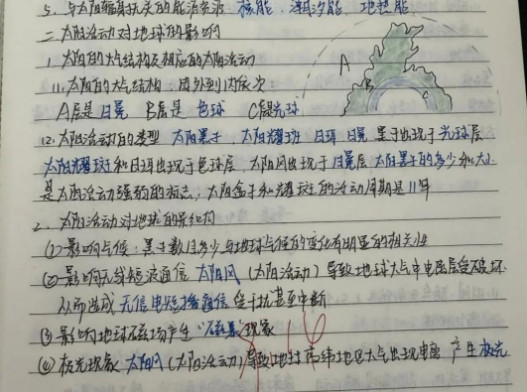 5. 与太阳辐射无关的能源资源 核能、潮汐能、地热能
二、太阳活动对地球的影响
1. 太阳的大气结构及相应的太阳活动
(1). 太阳的大气结构 由外到内依次
A层是日冕 B层是 色球 C层光球
A
B
C
(2). 太阳活动的类型 太阳黑子、太阳耀斑 日珥 日冕 黑子出现于光球层
太阳耀斑和日珥出现于色球层, 太阳风出现于日冕层 太阳黑子的多少和大小
是太阳活动强弱的标志; 太阳黑子和耀斑的活动周期是11年
2. 太阳活动对地球的影响
(1)影响气候: 黑子数目多少与地球气候的变化有明显的相关性
(2)影响无线短波通信 太阳风 (太阳活动) 导致地球大气中电离层受破坏
从而造成 无线电短波通信 受干扰甚至中断
(3)影响地球磁场产生 "磁暴" 现象
(4) 极光现象 太阳风 (太阳活动) 导致地球高纬地区大气出现电离 产生极光